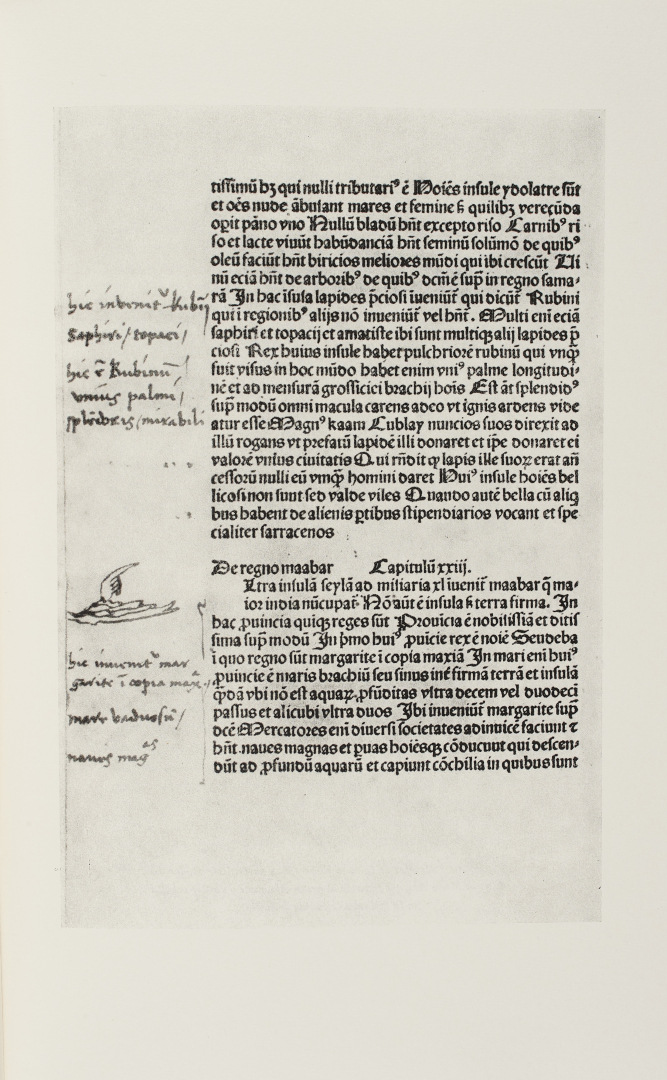 tissimū bʒ qui nulli tributari⁹ ē Hoiēs insule ydolatre sūt
et oēs nude ābulant mares et femine s̄ quilibʒ verecūda
opit pāno vno Nullū bladū hn̄t excepto riso Carnib⁹ ri
so et lacte viuūt habūdanciā hn̄t seminū solūmō de quib⁹
oleū faciūt hn̄t biricios meliores mūdi qui ibi crescūt Ui
nū eciā hn̄t de arborib⁹ de quib⁹ dcm̄ ē sup̄ in regno sama⸗
rā In hac īsula lapides p̄ciosi iueniūt᷑ qui dicūt᷑ Rubini
qui ī regionib⁹ alijs nō inueniūt᷑ vel hn̄t. Multi em̄ eciā
saphiri et topacij et amatiste ibi sunt multiqꝫ alij lapides p̄
ciosi Rex huius insule habet pulchriorē rubinū qui vnqͣꝫ
fuit visus in hoc mūdo habet enim vni⁹ palme longitudi⸗
nē et ad mensurā grossiciei brachij hois Est āt splendid⁹
sup̄ modū omni macula carens adeo vt ignis ardens vide
atur esse Magn⁹ kaam Cublay nuncios suos direxit ad
illū rogans vt prefatū lapidē illi donaret et ip̄e donaret ei
valorē vnius ciuitatis Qui rn̄dit ꝙ lapis ille suoꝝ erat an̄
cessoꝝ nulli eū vmqͣꝫ homini daret Hui⁹ insule hoiēs bel
licosi non sunt sed valde viles Quando autē bella cū aliq̄
bus habent de alienis ꝑtibus stipendiarios vocant et spe
cialiter sarracenos
De regno maabar Capitulū xxiij.
Ultra insulā seylā ad miliaria xl iuenit᷑ maabar q̄ ma⸗
ior india nūcupat᷑ Nō aūt ē insula s̄ terra firma. In
hac ꝓuincia quiqꝫ reges sūt Prouīcia ē nobilissīa et ditis
sima sup̄ modū In p̄mo hui⁹ ꝓuīcie rex ē noīe Seudeba
ī quo regno sūt margarite ī copia maxīa In mari em̄ hui⁹
ꝓuincie ē maris brachiū seu sinus int̄ firmā terrā et insulā
qͣdā vbi nō est aquaꝝ ꝓfūditas vltra decem vel duodecī
passus et alicubi vltra duos Ibi inueniūt᷑ margarite sup̄
dcē Mercatores em̄ diuersi societates adinuicē faciunt ⁊
hn̄t naues magnas et ꝑuas hoiēsqꝫ cōducunt qui descen⸗
dūt ad ꝓfundū aquarū et capiunt cōchilia in quibus sunt
hic invenit᷑ Rubinj
saphiri / topaci /
hic ē Rubinū /
vnius palmi /
mirabili
hic invenit᷑ mar
garite ī copia maxͣ
mare vaduosū /
navis mag as